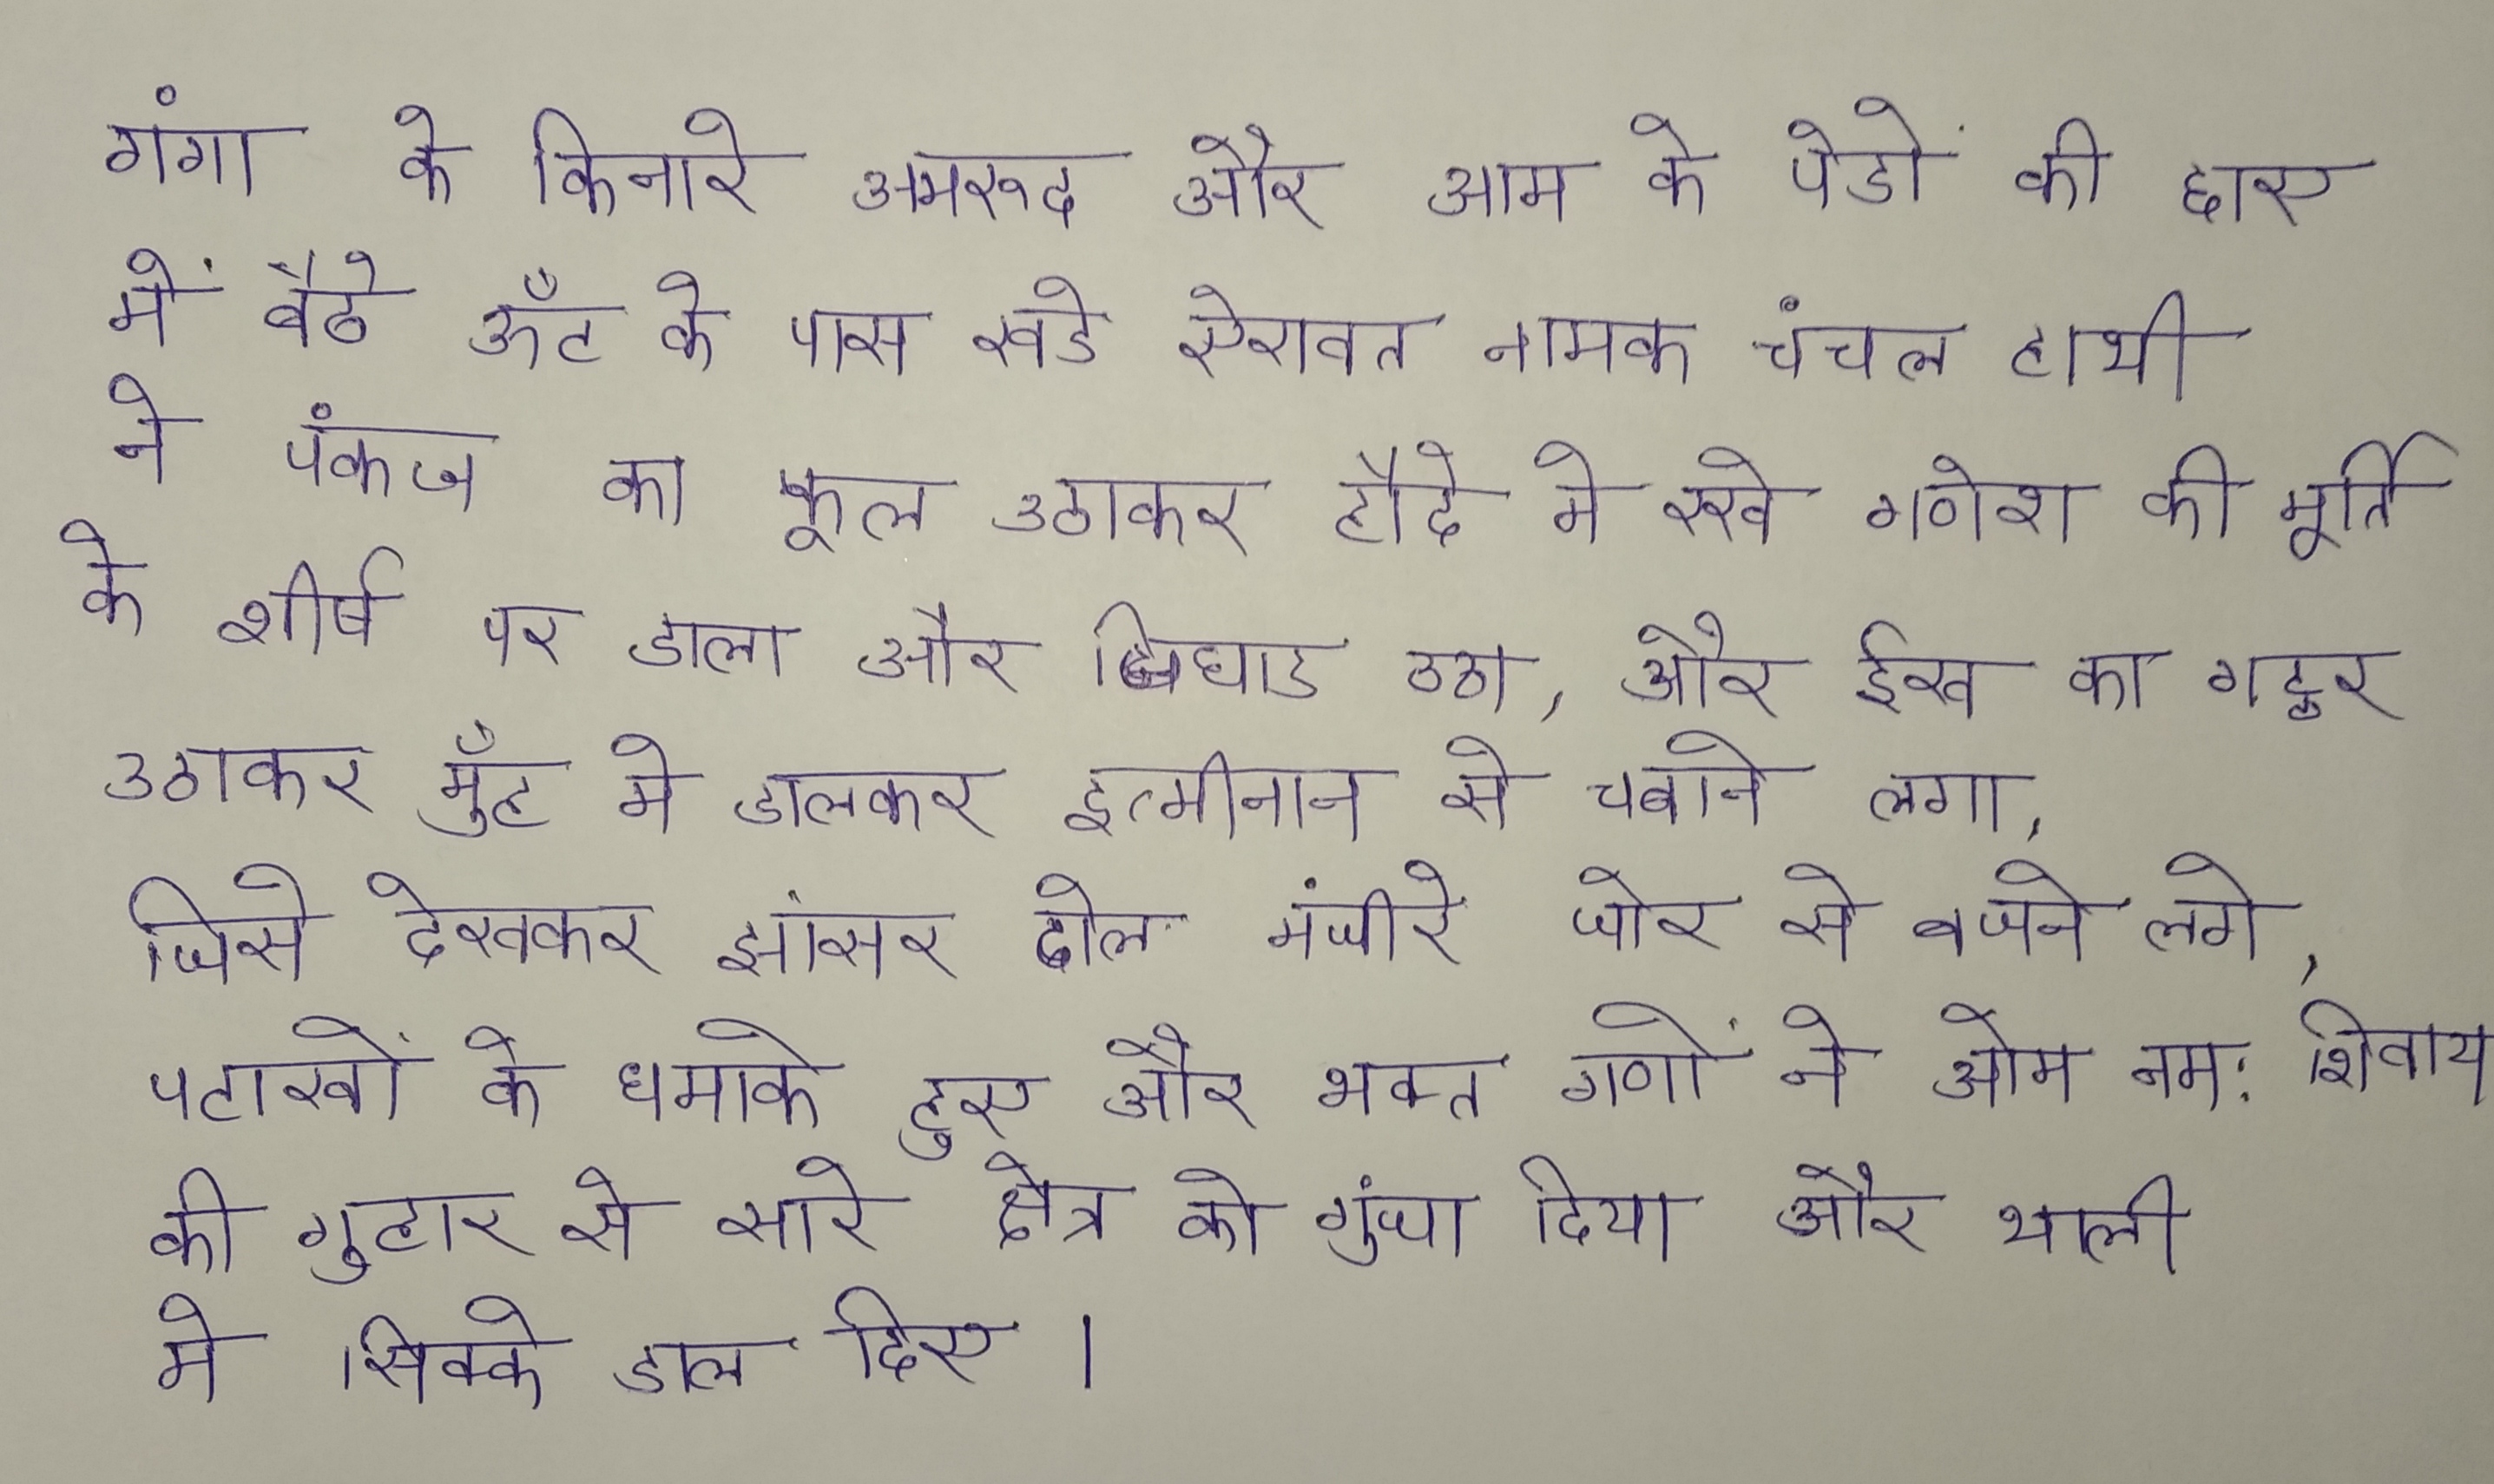 गंगा के किनारे अमरूद और आम के पेडों की छाए
में बैठे ऊँट के पास खडे ऐरावत नामक चंचल हाथी
ने पंकज का फूल उठाकर हौदे मे रखे गणेश की मूर्ति
के शीर्ष पर डाला और चिघाड उठा, और ईख का गट्ठर
उठाकर मुँह मे डालकर इत्मीनान से चबाने लगा,
जिसे देखकर झांसर ढोल मंजीरे जोर से बजने लगे,
पटाखों के धमाके हुए और भक्त गणों ने ओम नमः शिवाय
की गुहार से सारे क्षेत्र को गुंजा दिया और थाली
मे सिक्के डाल दिए ।